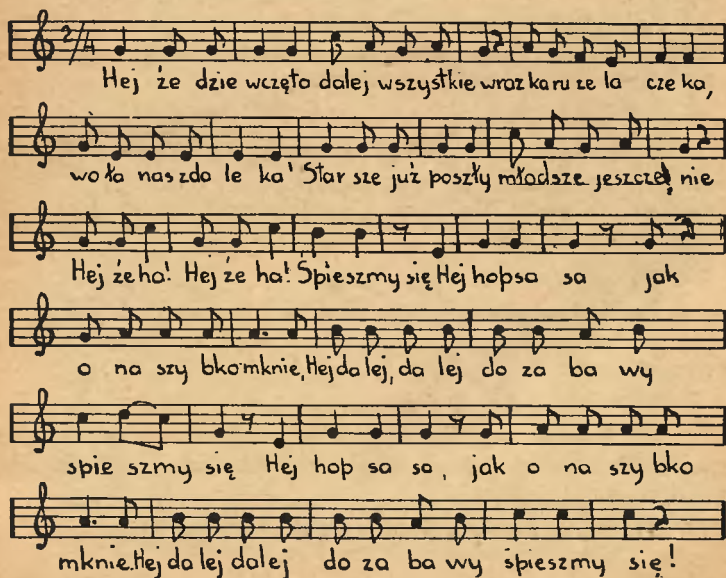 2/4
Hej że dzie wczęta dalej wszystkie wraz karu ze la cze ka,
wo ła nas zda le ka! Star sze już poszły młodsze jeszcze nie
Hej że ha! Hej że ha! Spieszmy się Hej hopsa sa jak
o na szy bko mknie, Hej da lej, da lej do za ba wy
spie szmy się Hej hop sa sa, jak o na szy bko
mknie. Hej da lej dalej do za ba wy śpieszmy się!